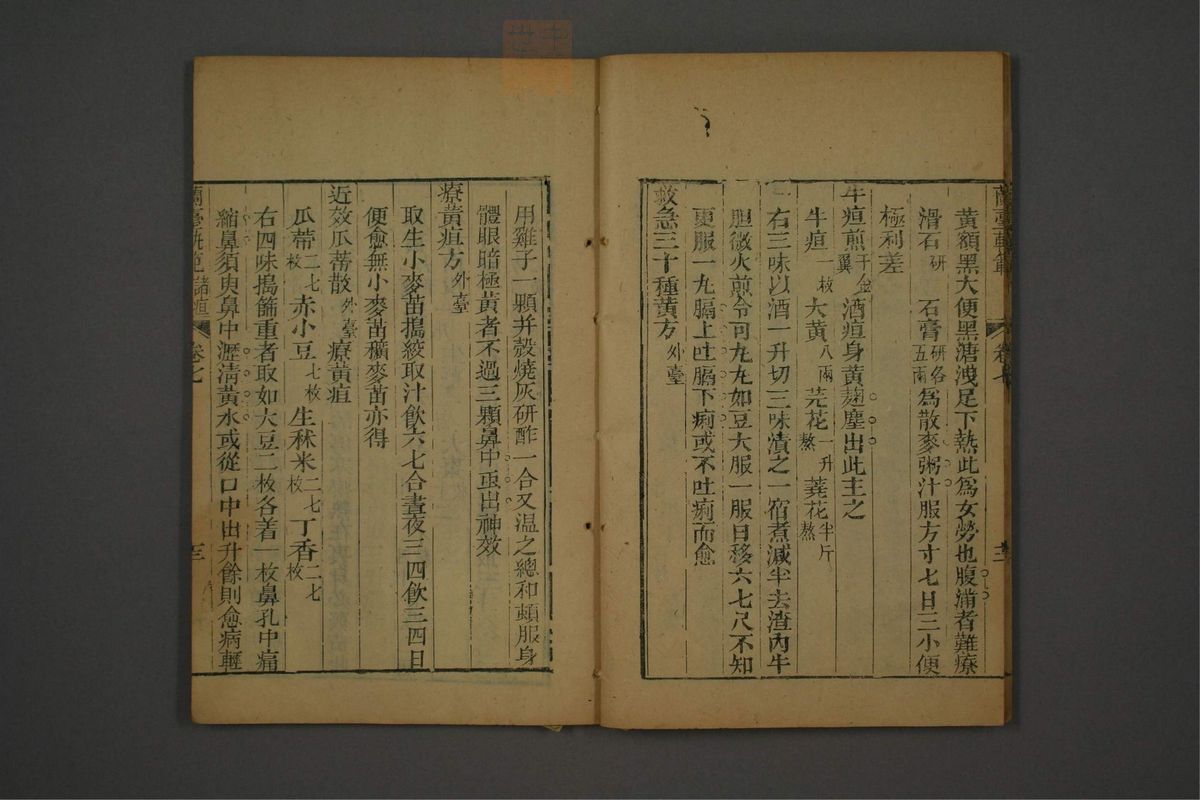 黃額黑大便黑溏洩足下熱此爲女勞也腹滿者難療
滑石研 石膏研各五兩 爲散麥粥汁服方寸七日三小便
極利差
牛疸煎千金翼 酒疸身黃麹塵出此主之
牛疸一枚 大黃八兩 芫花一升熬 蕘花半斤熬
右三味以酒一升切三味漬之一宿煮減半去渣內牛
膽微火煎令可丸丸如豆大服一服日移六七尺不知
更服一丸膈上吐膈下痢或不吐痢而愈
救急三十種黃方外臺
用雞子一顆并殼燒灰研酢一合又温之總和頓服身
體眼暗極黃者不過三顆鼻中䖝出神效
療黃疸方外臺
取生小麥苗搗絞取汁飲六七合晝夜三四飲三四日
便愈無小麥苗穬麥苗亦得
近效瓜蔕散外臺 療黃疸
瓜蔕二七枚 赤小豆七枚 生秫米二七枚 丁香二七枚
右四味搗篩重者取如大豆二枚各着一枚鼻孔中痛
縮鼻須臾鼻中瀝清黃水或從口中出升餘則愈病輕
蘭臺軌範 諸疸 卷七